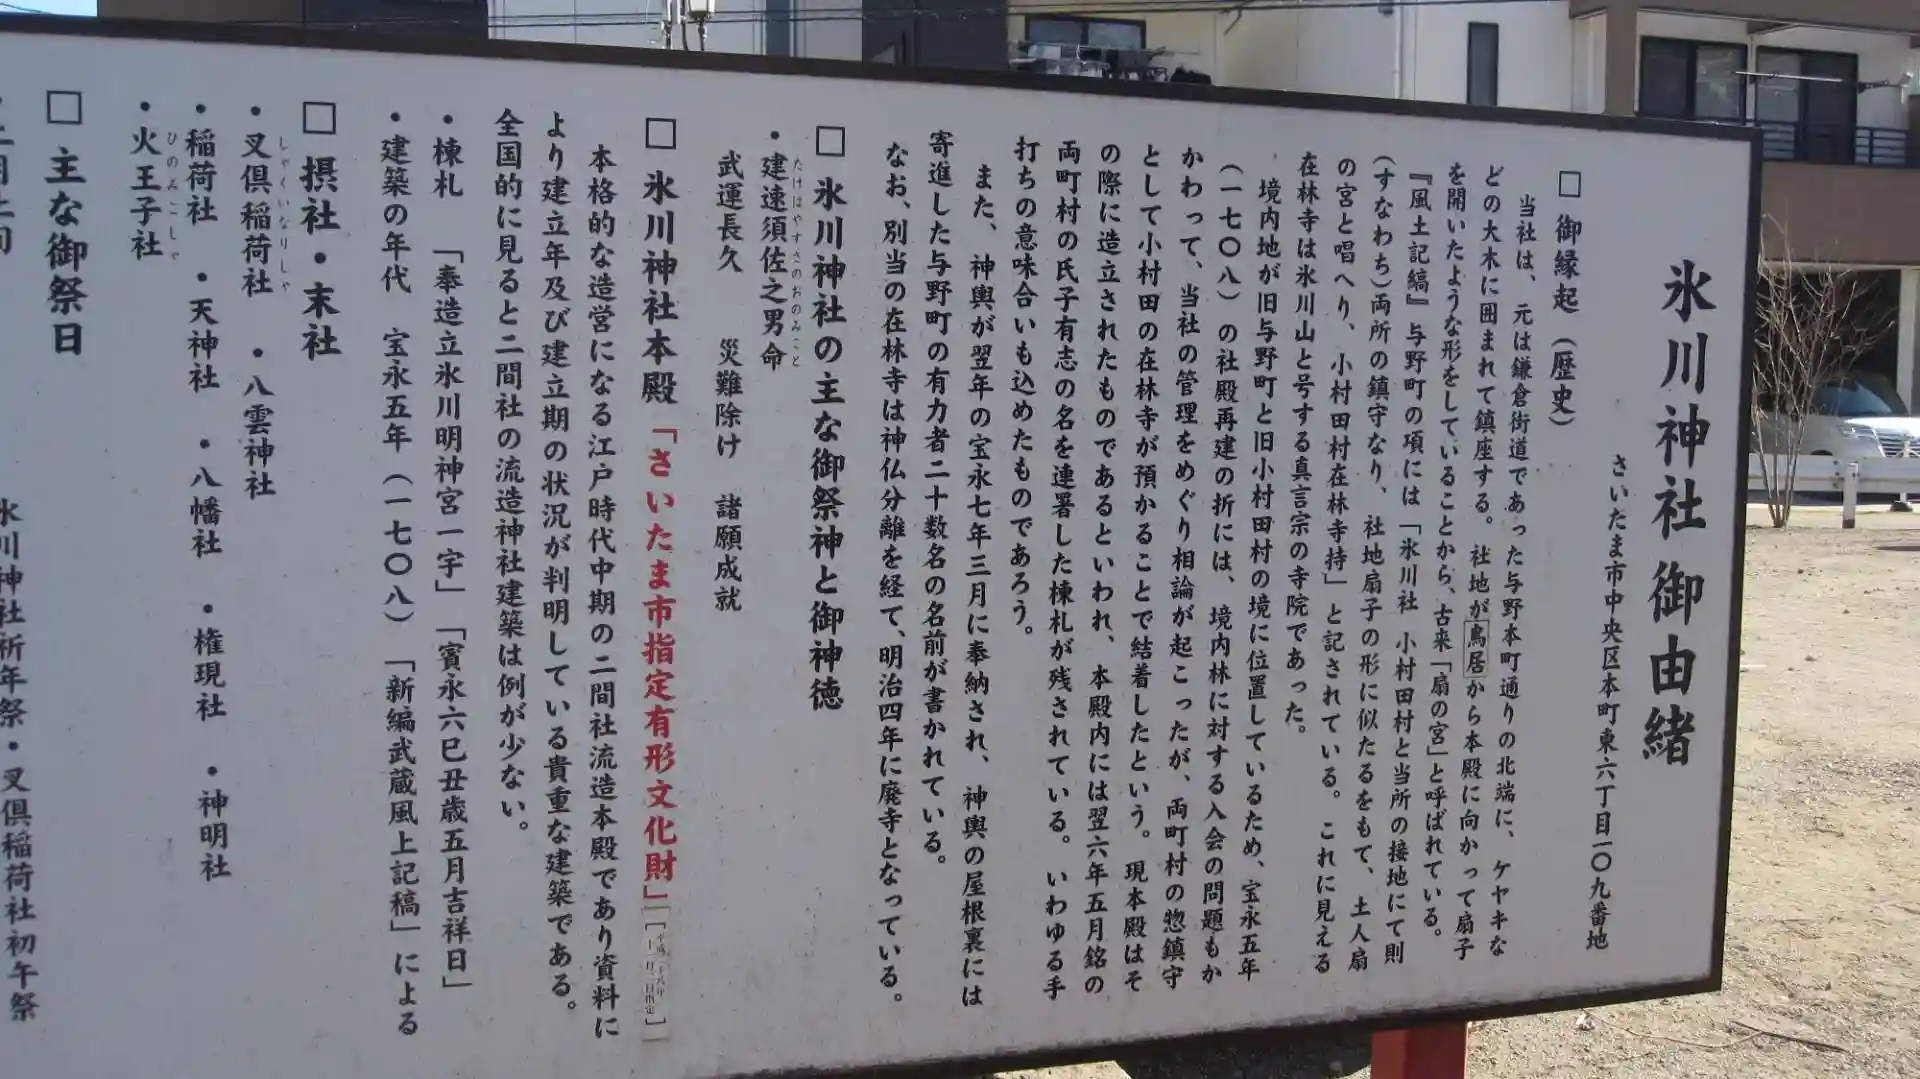 氷川神社 御由緒
さいたま市中央区本町東六丁目一〇九番地
□ 御縁起（歴史）
当社は、元は鎌倉街道であった与野本町通りの北端に、ケヤキな
どの大木に囲まれて鎮座する。社地が鳥居から本殿に向かって扇子
を開いたような形をしていることから、古来「扇の宮」と呼ばれている。
『風土記縞』与野町の項には「氷川社 小村田村と当所の接地にて則
（すなわち）両所の鎮守なり、社地扇子の形に似たるをもて、土人扇
の宮と唱へり、小村田村在林寺持」と記されている。これに見える
在林寺は氷川山と号する真言宗の寺院であった。
境内地が旧与野町と旧小村田村の境に位置しているため、宝永五年
（一七〇八）の社殿再建の折には、境内林に対する入会の問題もか
かわって、当社の管理をめぐり相論が起こったが、両町村の惣鎮守
として小村田の在林寺が預かることで結着したという。現本殿はそ
の際に造立されたものであるといわれ、本殿内には翌六年五月銘の
両町村の氏子有志の名を連署した棟札が残されている。いわゆる手
打ちの意味合いも込めたものであろう。
また、神輿が翌年の宝永七年三月に奉納され、神輿の屋根裏には
寄進した与野町の有力者二十数名の名前が書かれている。
なお、別当の在林寺は神仏分離を経て、明治四年に廃寺となっている。
□ 氷川神社の主な御祭神と御神徳
・建速須佐之男命
たけはやすさのおのみこと
武運長久 災難除け 諸願成就
□ 氷川神社本殿「さいたま市指定有形文化財」
本格的な造営になる江戸時代中期の二間社流造本殿であり資料に
より建立年及び建立期の状況が判明している貴重な建築である。
全国的に見ると二間社の流造神社建築は例が少ない。
・棟札 「奉造立氷川明神宮一宇」「賓永六巳丑歳五月吉祥日」
・建築の年代 宝永五年（一七〇八）「新編武蔵風土記稿」による
□ 摂社・末社
・叉倶稲荷社 ・八雲神社
しゃくいなりしゃ
・稲荷社 ・天神社 ・八幡社 ・権現社 ・神明社
・火王子社
ひのみこしゃ
□ 主な御祭日
氷川神社祈年祭・叉倶稲荷社初午祭